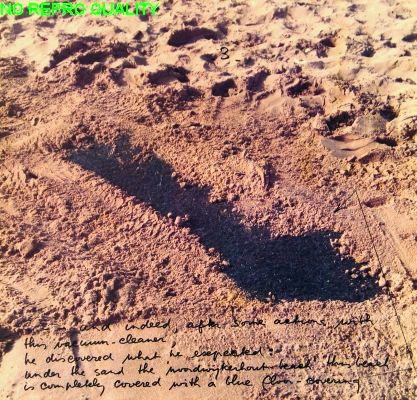 NO REPRO QUALITY
3
- - - and indeed, after some actions with
this vacuum-cleaner,
he discovered what he expected:
under the sand the noordwijkerhout-beach! this beach
is completely covered with a blue floor-covering